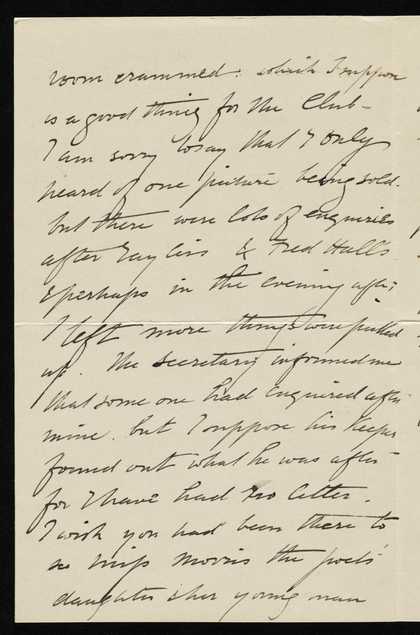 room crammed. which I suppose
is a good thing for the Club -
I am sorry to say that I only
heard of one picture being sold.
but there were lots of enquiries
after Gaylirs & Fred Halls
& perhaps in the evening after
I left more things were picked
up. The secretary informed me
that some one had enquired after
mine. but I suppose his keeper
found out what he was after
for I have had no letter.
I wish you had been there to
see Miss Morris the poets
daughter & her young man